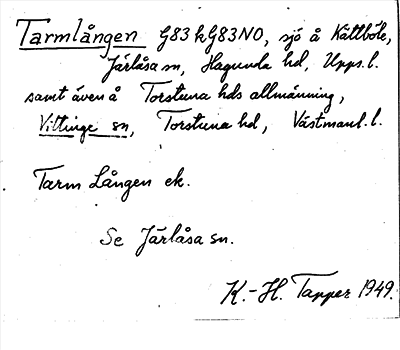 Tarmlången G83 k G83NO, sjö å Kättböle,
Järlåsa sn, Hagunda hd, Upps. l.
samt även å Torstuna hds allmänning,
Vittinge sn, Torstuna hd, Västmanl. l.
Tarm Lången ek.
Se Järlåsa sn.
K.-H. Tapper 1949.